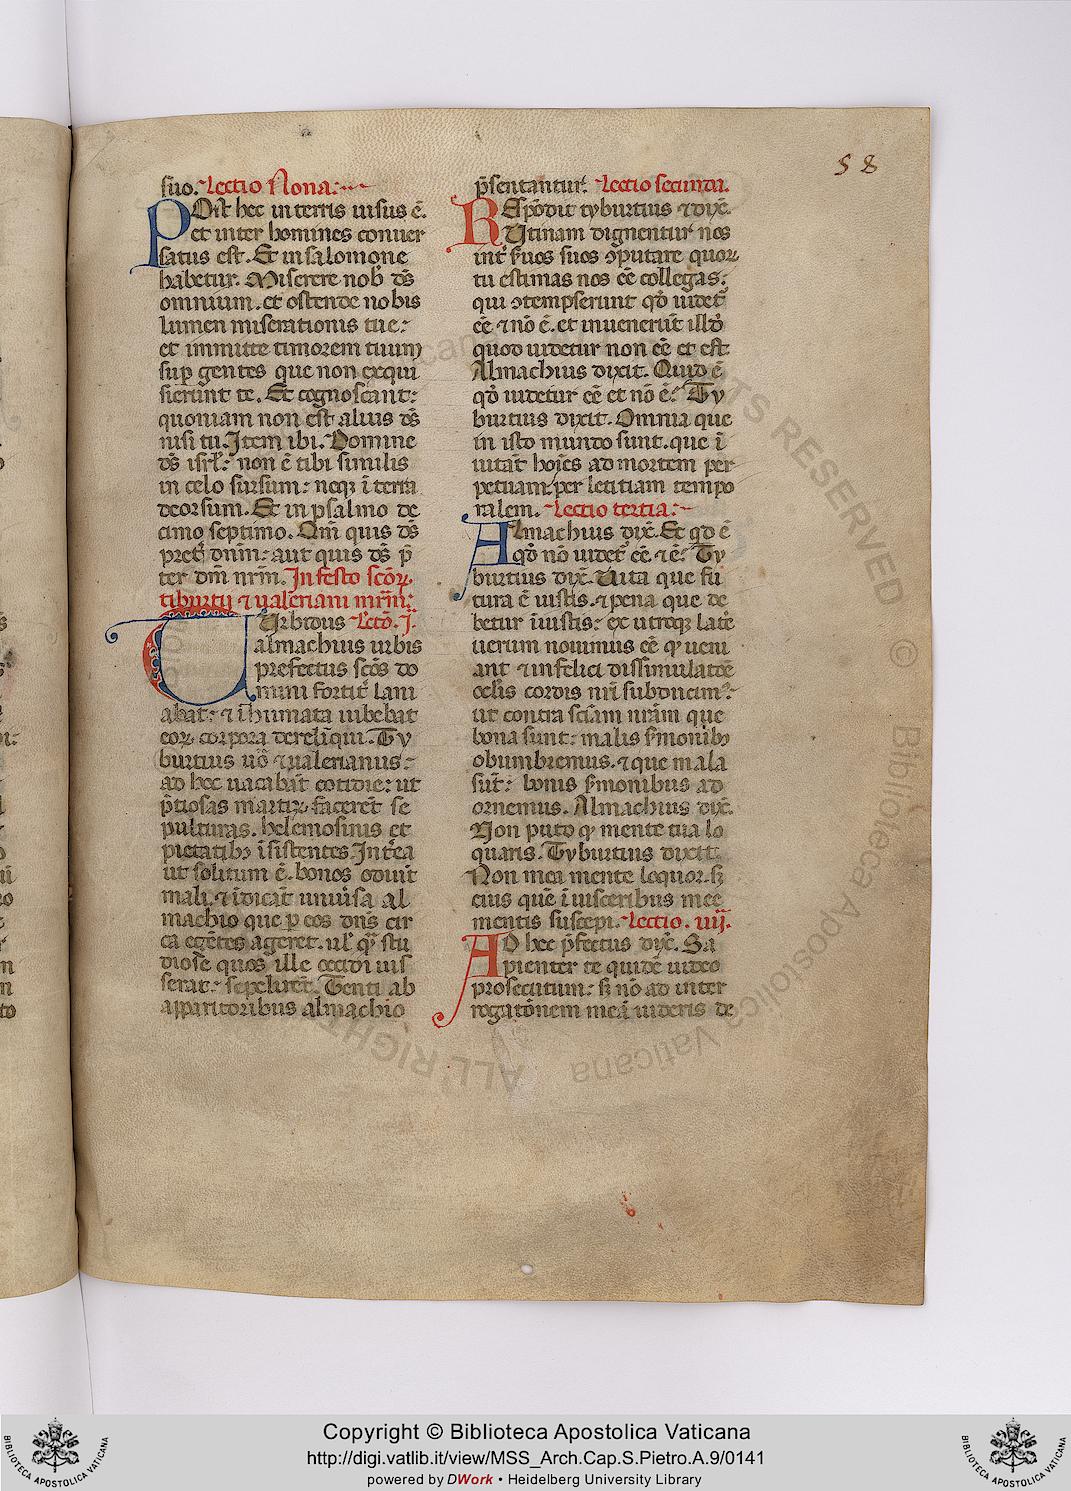 58
suo. Lectio Nona:
POst hec in terris uisus ē.
et inter homines conuer
satus est. Et in salomone
habetur. Miserere nob̄ dš
omnium. et ostende nobis
lumen miserationis tue:
et immitte timorem tuum
suꝑ gentes que non exqui
sierunt te. Et cognoscant:
quoniam non est alius dš
nisi tu. Item ibi. Domine
dš isrl̄: non ē tibi similis
in celo sursum: neqꝫ ī terra
deorsum. Et in psalmo de
cimo septimo. Qm̄ quis dš
pret̄ dn̄m: aut quis dš p̄
ter dm̄ nrm̄. In festo sc̄oꝝ.
tiburtii ⁊ ualeriani mr̄m:
TUrbidus Lectō. j.
almachius urbis
prefectus sc̄os do
mini fortit̄ lani
abat: ⁊ īhumata iubebat
eoꝝ corpora derelīqui. Ty
burtius uō ⁊ ualerianus:
ad hec uacabāt cotidie: ut
p̄tiosas martiꝝ facerēt se
pulturas. helemosinis et
pietatibꝫ īsistentes. Intēa
ut solitum ē. bonos odiūt
mali. ⁊ īdicāt uniūsa al
machio que ꝑ eos dn̄s cir
ca egētes ageret. ul̄ qꝫ stu
diose quos ille occidi iuis
serat: sepelirēt. Tenti ab
apparitoribus almachio
p̄sentantur. Lectio secunda.
REspōdit tyburtius ⁊ dix̄.
Utinam dignentur nos
int̄ s̄uos suos ꝯputare quoꝝ
tu estimas nos ēē collegas:
qui ꝯtempserunt qd̄ uidet̄
ēē ⁊ nō ē. et inuenerūt illd̄
quod uidetur non ēē et est.
Almachius dixit. Quid ē
qd̄ uidetur ēē et nō ē: Ty
burtius dixit. Omnia que
in isto mundo sunt. que ī
uitāt hoīes ad mortem per
petuam. per letitiam tempo
ralem. Lectio tertia:
Almachius dix̄. Et qd̄ ē
qd̄ nō uidet̄ ēē. ⁊ ē: Ty
burtius dix̄. Uita que fu
tura ē iustis. ⁊ pena que de
betur īiustis: ex utroqꝫ lat̄e
uerum nouimus ēē qꝫ ueni
ant ⁊ infelici dissimulatōe
oclīs cordis nr̄i subducim̄:
ut contra sciām nr̄am que
bona sunt: malis s̄monibꝫ
obumbremus. ⁊ que mala
sūt: bonis s̄monibus ad
ornemus. Almachius dix̄.
Non puto qꝫ mente tua lo
quaris. Tyburtius dixit.
Non mea mente loquor. sꝫ
eius quē ī uisceribus mee
mentis suscepi. Lectio. iiij.
AD hec p̄fectus dix̄. Sa
pienter te quidē uideo
prosecutum: sꝫ nō ad inter
rogatōnem meā uideris de
ALL RIGHTS RESERVED © Biblioteca Apostolica Vaticana
Copyright © Biblioteca Apostolica Vaticana
http://digi.vatlib.it/view/MSS_Arch.Cap.S.Pietro.A.9/0141
powered by DWork • Heidelberg University Library
BIBLIOTECA APOSTOLICA VATICANA
BIBLIOTECA APOSTOLICA VATICANA